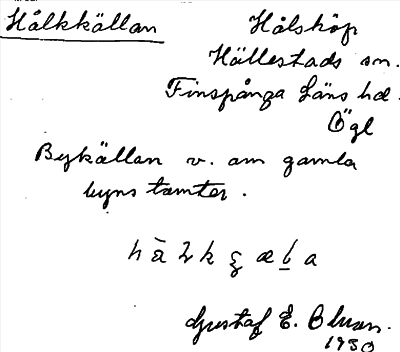 Hålkkällan
Hålsköp
Hällestads sn.
Finspånga Läns hd.
Ögl
Bykällan v. om gamla
byns tomter.
Gustaf E.
1930